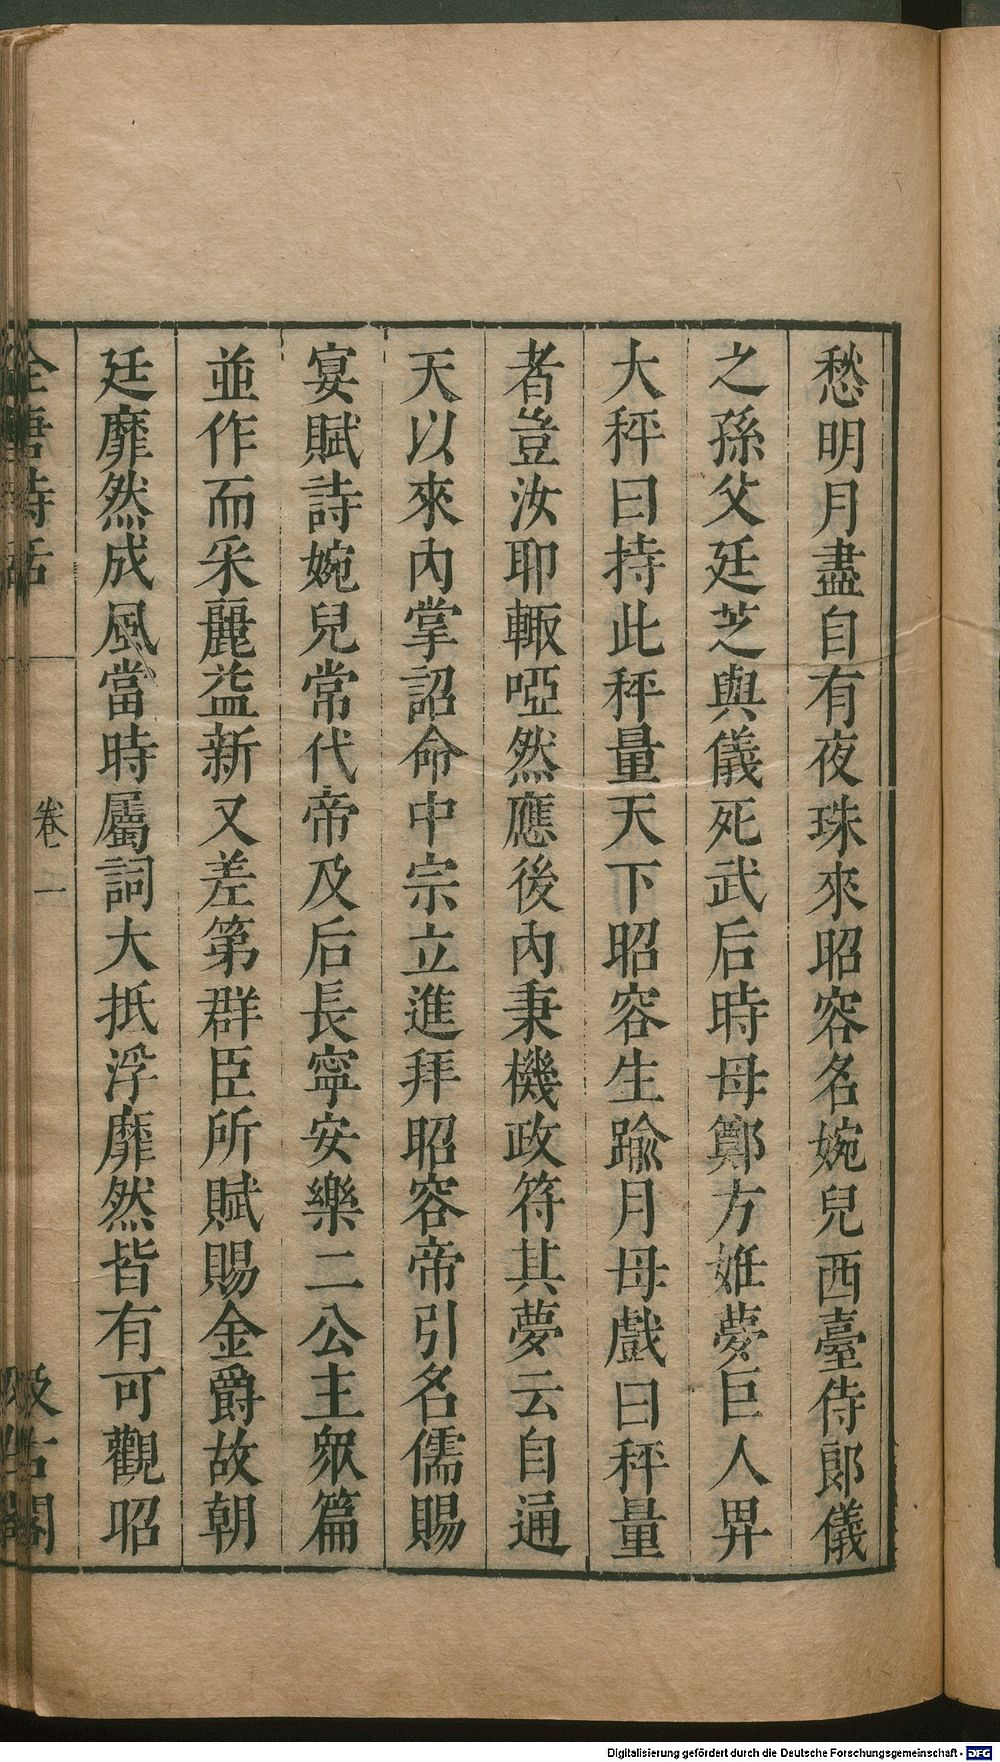 愁明月盡自有夜珠來昭容名婉兒西臺侍郎儀
之孫父廷芝與儀死武后時母鄭方姙夢巨人畀
大秤曰持此秤量天下昭容生踰月母戲曰秤量
者豈汝耶輙啞然應後內秉機政符其夢云自通
天以來內掌詔命中宗立進拜昭容帝引名儒賜
宴賦詩婉兒常代帝及后長寧安樂二公主眾篇
並作而采麗益新又差第群臣所賦賜金爵故朝
廷靡然成風當時屬詞大抵浮靡然皆有可觀昭
全唐詩話 卷一 汲古閣
Digitalisierung gefördert durch die Deutsche Forschungsgemeinschaft - DFG